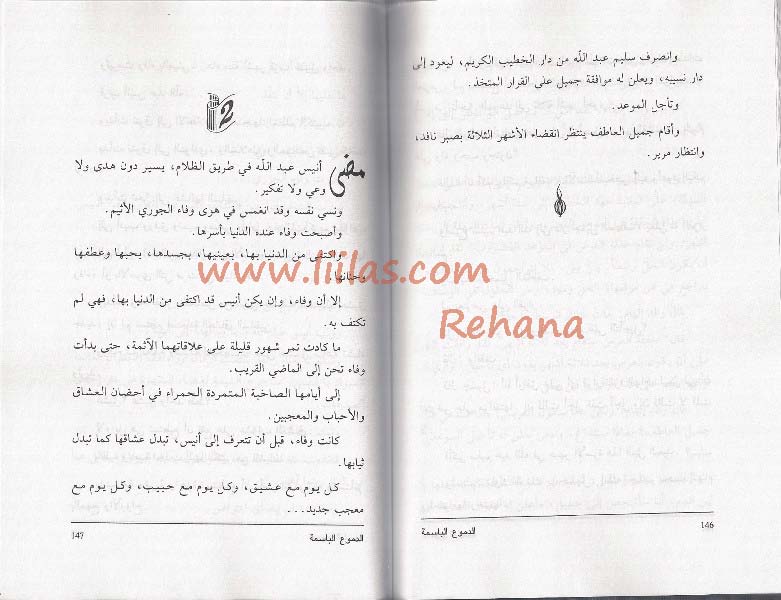 وانصرف سليم عبد الله من دار الخطيب الكريم، ليعود إلى
دار نسيبه، ويعلن له موافقة جميل على القرار المتخذ.
وتأجل الموعد.
وأقام جميل العاطف ينتظر انقضاء الأشهر الثلاثة بصبر نافد،
وانتظار مرير.
146
الدموع الباسمة
2
مضى أنيس عبد الله في طريق الظلام، يسير دون هدى ولا
وعي ولا تفكير.
ونسي نفسه وقد انغمس في هوى وفاء الجوري الأثيم.
وأصبحت وفاء عنده الدنيا بأسرها.
واكتفى من الدنيا بها، بعينيها، بجسدها، بحبها وعطفها
وحنانها.
إلا أن وفاء، وإن يكن أنيس قد اكتفى من الدنيا بها، فهي لم
تكتف به.
ما كادت تمر شهور قليلة على علاقاتهما الآثمة، حتى بدأت
وفاء تحن إلى الماضي القريب.
إلى أيامها الصاخبة المتمردة الحمراء في أحضان العشاق
والأحباب والمعجبين.
كانت وفاء، قبل أن تتعرف إلى أنيس، تبدل عشاقها كما تبدل
ثيابها.
كل يوم مع عشيق، وكل يوم مع حبيب، وكل يوم مع
معجب جديد...
147
الدموع الباسمة
www.liilas.com
Rehana